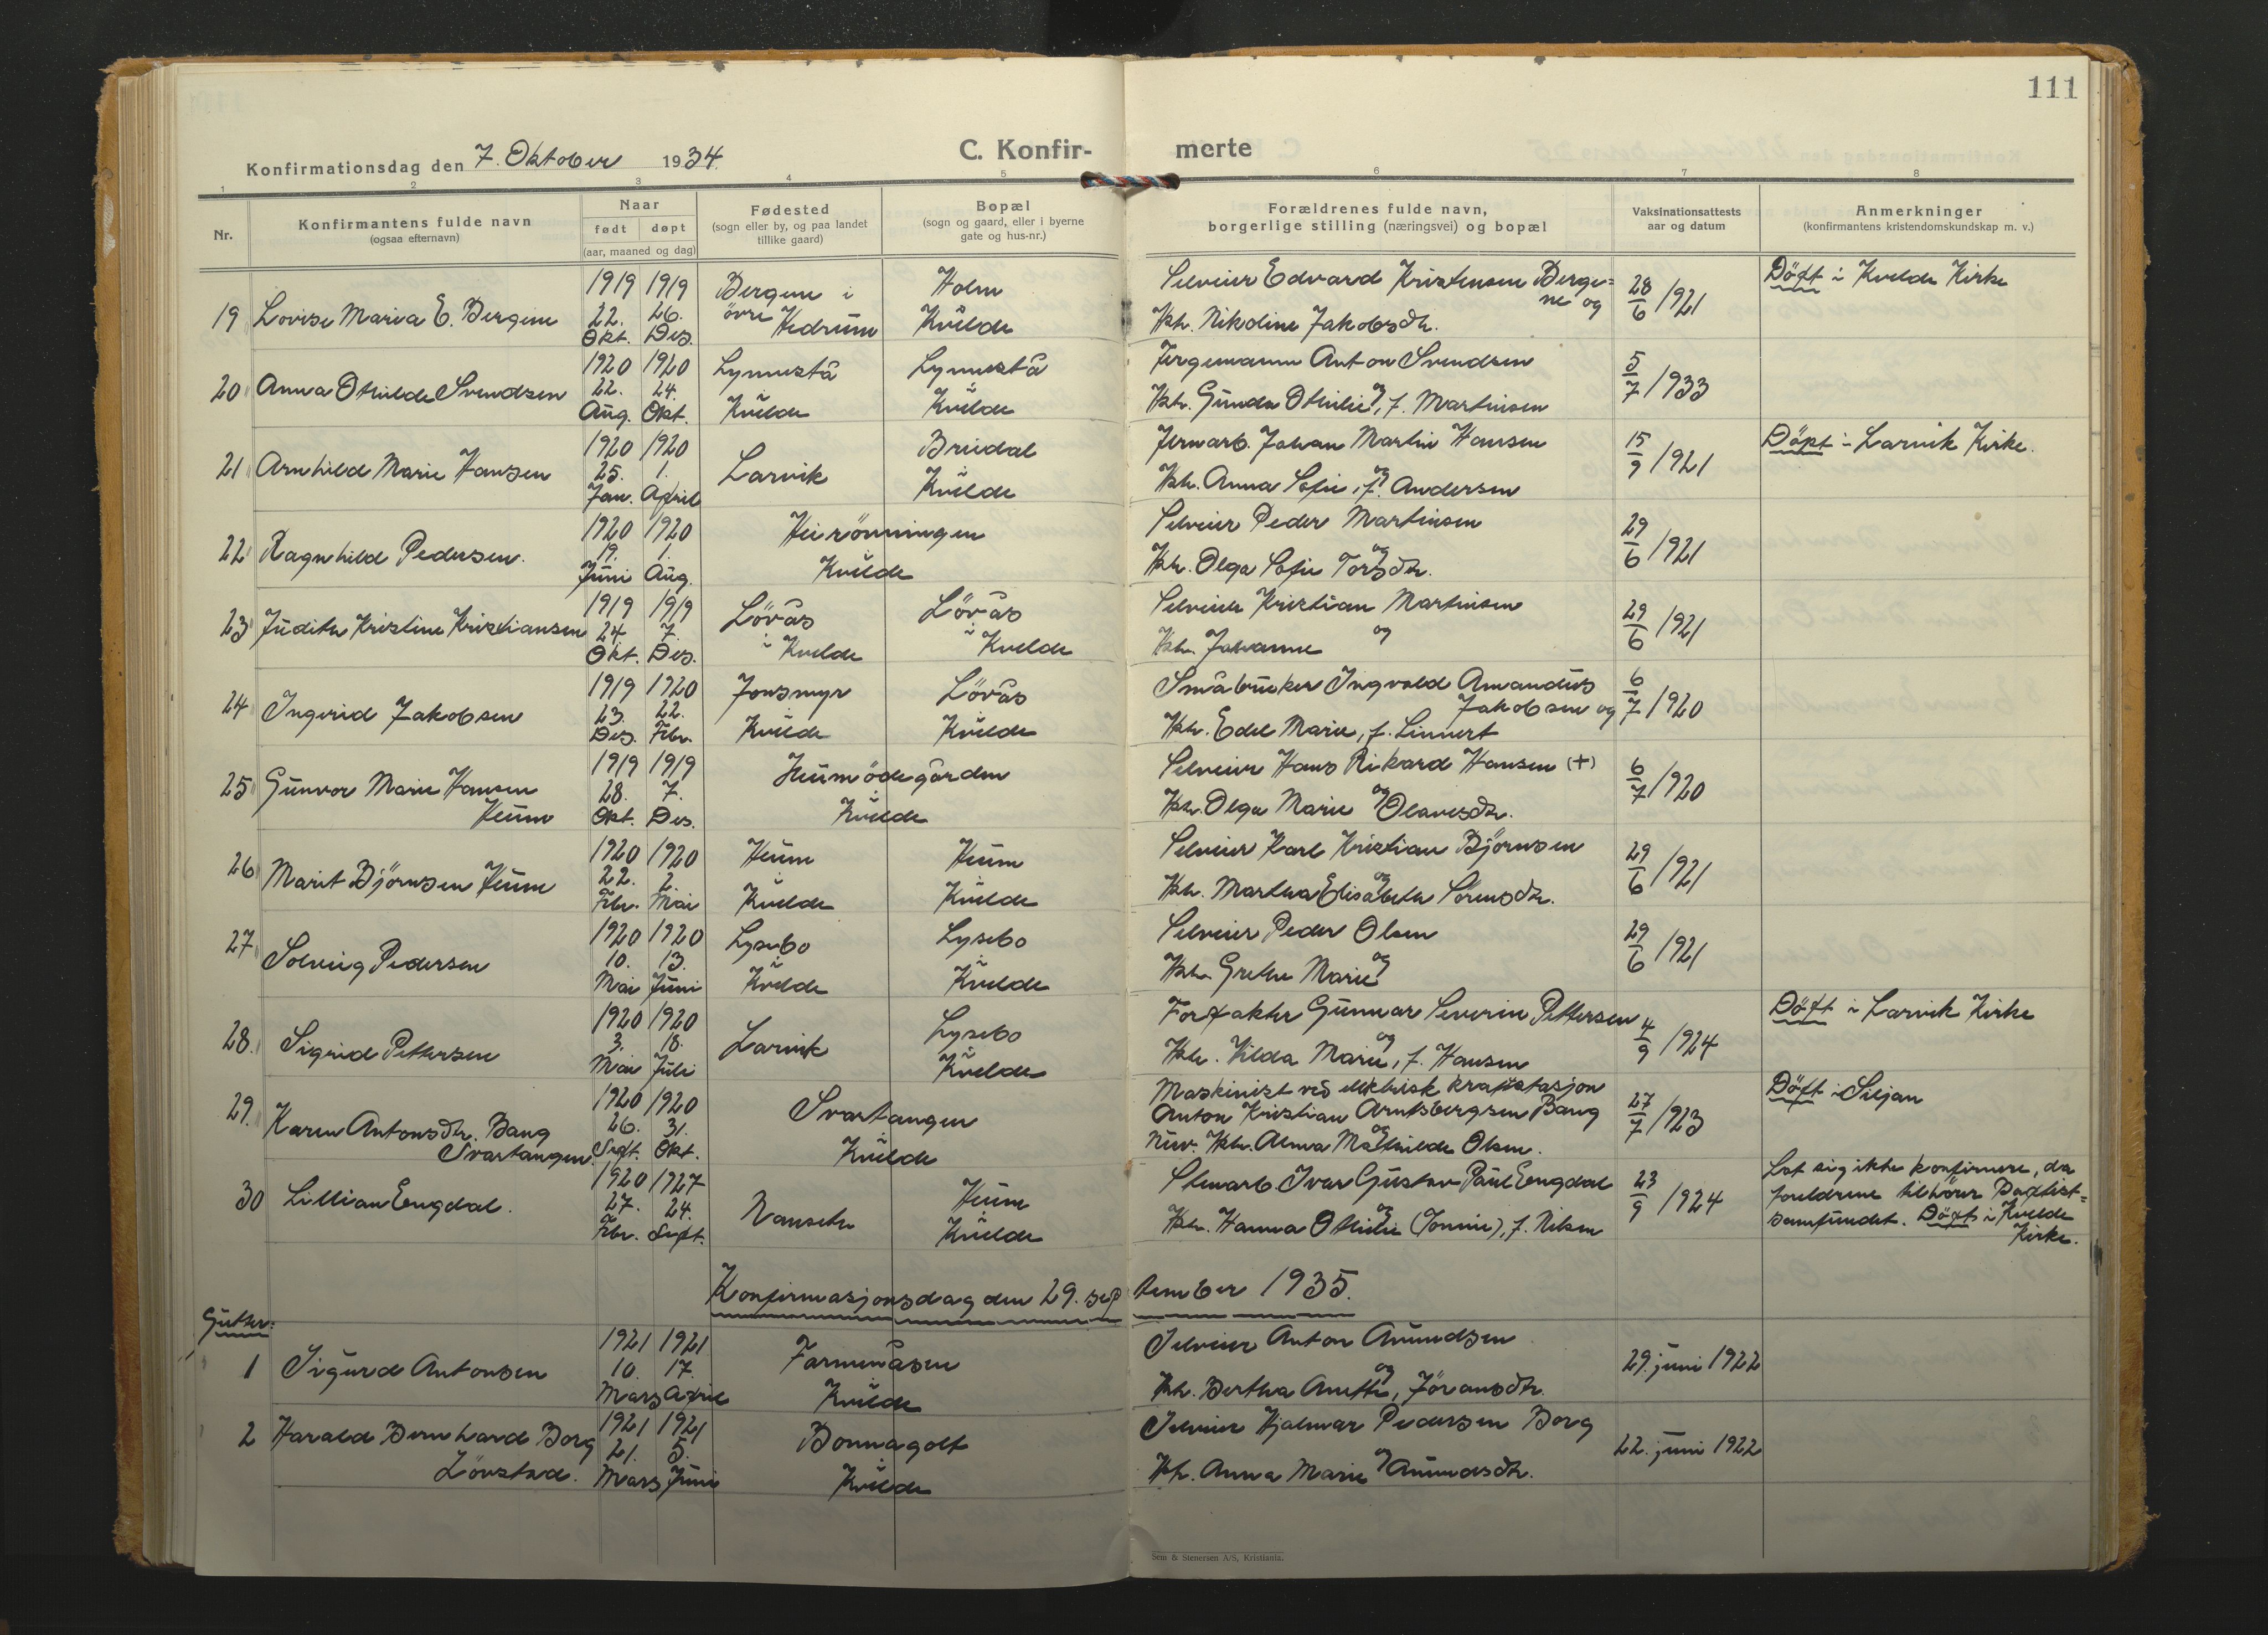 111
Konfirmationsdag den 7. Oktober 1934.
C. Konfirmerte
1 2 3 4 5 6 7 8
Nr.
Konfirmantens fulde navn
(ogsaa efternavn)
Naar
født døpt
(aar, maaned og dag)
Fødested
(sogn eller by, og paa landet
tillike gaard)
Bopæl
(sogn og gaard, eller i byerne
gate og hus-nr.)
Forældrenes fulde navn,
borgerlige stilling (næringsvei) og bopæl
Vaksinationsattests
aar og datum
Anmerkninger
(konfirmantens kristendomskundskap m. v.)
1919 1919 Bergene i Holm Selveier Edvard Kristensen Berge= 28 Döpt i Kvelde Kirke
19 Lovise Maria E. Bergene 22. 26. övre Hedrum i Kvelde ne og 6 /1921
Okt. Des. Hstr. Nikoline Jakobsdtr.
1920 1920 Lynnestå Lynnestå Fergemann Anton Svendsen 5
20 Anna Othilde Svendsen 22. 24. i og 7 /1933
Aug. Okt. Kvelde Kvelde Hstr. Gunda Othilie, f. Martinsen
1920 1920 Breidal Jernarb. Johan Martin Hansen 15 Döpt i Larvik Kirke.
21 Arnhild Marie Hansen 25. 1. Larvik i og 9 /1921
Jan. April Kvelde Hstr. Anna Sofie, f. Andersen
1920 1920 Heirönningen Selveier Peder Martinsen 29
22 Ragnhild Pedersen. 19. 1. i og 6 /1921
Juni Aug. Kvelde Hstr. Olga Sofie Torsdtr.
1919 1919 Lövås Lövås Selveier Kristian Martinsen 29
23 Judith Kristine Kristiansen 24. 7. i Kvelde i Kvelde og 6 /1921
Okt. Des. Hstr. Johanne
1919 1920 Jonsmyr Lövås Småbruker Ingvald Amandus 6
24 Ingrid Jakobsen 23. 22. i i Jakobsen og 7 /1920
Des. Febr. Kvelde Kvelde Hstr. Edel Marie, f. Linnert
1919 1919 Heumödegården Selveier Hans Rikard Hansen (+) 6
25 Gunvor Marie Hansen 28. 7. i og 7 /1920
Heum Okt. Des. Kvelde Hstr. Olga Marie Olavesdtr.
1920 1920 Heum Heum Selveier Karl Kristian Björnsen 29
26 Marit Björnsen Heum 22. 2. i i og 6 /1921
Febr. Mai Kvelde Kvelde Hstr. Martha Elisabeth Sörensdtr.
1920 1920 Lysebo Lysebo Selveier Peder Olsen 29
27 Solveig Pedersen 10. 13. i i og 6 /1921
Mai Juni Kvelde Kvelde Hstr. Grethe Marie
1920 1920 Lysebo Forpakter Gunnar Severin Pettersen 4 Döpt i Larvik Kirke
28. Sigrid Pettersen 3. 18. Larvik i og 9 /1924
Mai Juli Kvelde Hstr. Hilda Marie, f. Hansen
1920 1920 Svartangen Maskinist ved elektrisk kraftstasjon 27 Döpt i Siljan
29. Karen Antonsdtr. Bang 26. 31. i Anton Kristian Arntsbergsen Bang og 7 /1923
Svartangen. Sept. Okt. Kvelde Nuv. Hstr. Alma Mathilde Olsen.
1920 1927 Heum Stenarb. Ivar Gustav Paul Engdal 23 Lot sig ikke konfirmere, da
30 Lillian Engdal. 27. 24. Nanseth i og 9 /1924 foreldrene tilhörer Baptist=
Febr. Sept. Kvelde Hstr. Hanna Othilie (Jonine), f. Nilsen samfundet. Döpt i Kvelde
Kirke.
Konfirmasjonsdag den 29. september 1935.
Gutter:
1921 1921 Farmenåsen Selveier Anton Amundsen
1 Sigurd Antonsen 10. 17. i og 29. juni 1922
Mars April Kvelde Hstr. Bertha Anette, Jöransdtr.
1921 1921 Bonnagolt Selveier Hjalmar Pedersen Borg
2 Harald Bernhard Borg 21. 5. i og 22. juni 1922
Lövstad. Mars Juni Kvelde Hstr. Anna Marie Amundsdtr.
Sem & Stenersen A/S, Kristiania.